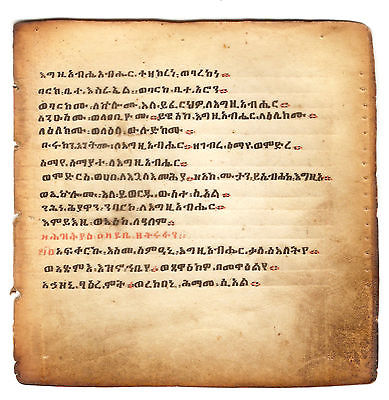 እግዚአብሔር፡ ተዘከረነ፡ ወባረከነ፡
ባርከ፡ ቤተ፡ እስራኤል፡ ወባረከ፡ ቤተ፡ አሮን፡
ወባረኮሙ፡ ለኵሎሙ፡ እለ፡ ይፈርህዎ፡ ለእግዚአብሔር
ለንኡሶሙ፡ ወለዐቢዮሙ፡ ይዌስክ፡ እግዚአብሔር፡ ላዕሌክሙ፡
ላዕሌክሙ፡ ወላዕለ፡ ውሉድክሙ
ቡሩካን፡ አንትሙ፡ ለእግዚአብሔር፡ ዘገብረ፡ ሰማየ፡ ወምድረ
ሰማየ፡ ሰማያት፡ ለእግዚአብሔር
ወምድርሰ፡ ወሀበ፡ ለእጓለ፡ እመሕያው፡ ዘአኮ፡ ሙታን፡ ይሴብሑከ፡ እግዚኦ
ወኢኵሎሙ፡ እለ፡ ይወርዱ፡ ውስተ፡ ሲኦል
ንሕነ፡ ሕያዋን፡ ንባርኮ፡ ለእግዚአብሔር፡
እምይእዜ፡ ወእስከ፡ ለዓለም
አፍቀርኩ፡ እስመ፡ ሰምዐኒ፡ እግዚአብሔር፡ ቃለ፡ ስእለትየ
ወአጽምአ፡ እዝኖ፡ ኀቤየ፡ ወጸዋዕክዎ፡ በመዋዕልየ
አኀዘኒ፡ ጻዕረ፡ ሞት፡ ወረከበኒ፡ ሕማመ፡ ሲኦል